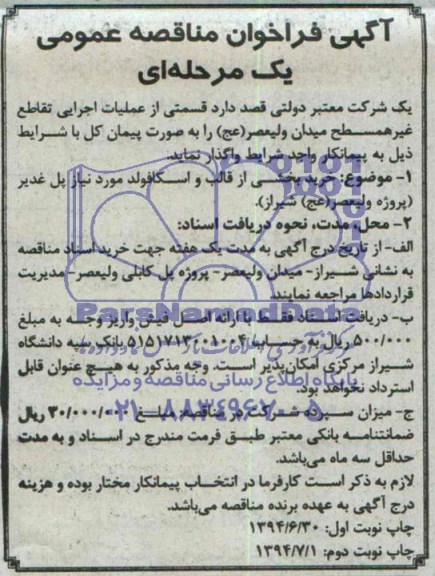 آگهی فراخوان مناقصه عمومی
یک مرحله‌ای
یک شرکت معتبر دولتی قصد دارد قسمتی از عملیات اجرایی تقاطع
غیرهمسطح میدان ولیعصر(عج) را به صورت پیمان کل با شرایط
ذیل به پیمانکار واجد شرایط واگذار نماید.
۱- موضوع: خرید بخشی از قالب و اسکافولد مورد نیاز پل غدیر
(پروژه ولیعصر(عج) شیراز).
۲- محل، مدت، نحوه دریافت اسناد:
الف- از تاریخ درج آگهی به مدت یک هفته جهت خرید اسناد مناقصه
به نشانی شیراز- میدان ولیعصر- پروژه پل کابلی ولیعصر- مدیریت
قراردادها مراجعه نمایند.
ب- دریافت اسناد فقط با ارائه اصل فیش واریز وجه به مبلغ
۵۰۰/۰۰۰ ریال به حساب بانک سپه دانشگاه
شیراز مرکزی امکان‌پذیر است. وجه مذکور به هیچ عنوان قابل
استرداد نخواهد بود.
ج- میزان سپرده شرکت در مناقصه: مبلغ ریال
ضمانتنامه بانکی معتبر طبق فرمت مندرج در اسناد و به مدت
حداقل سه ماه می‌باشد.
لازم به ذکر است کارفرما در انتخاب پیمانکار مختار بوده و هزینه
درج آگهی به عهده برنده مناقصه می‌باشد.
چاپ نوبت اول: ۱۳۹۴/۶/۳۰
چاپ نوبت دوم: ۱۳۹۴/۷/۱
ParsNamadData
پایگاه اطلاع رسانی مناقصه و مزایده